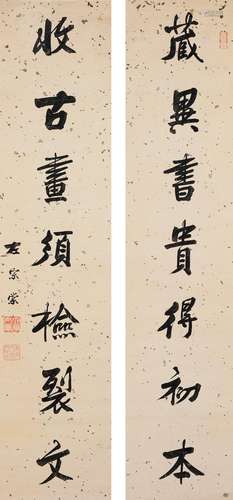 藏異書貴得初本
收古畫須檢裂文
左宗棠